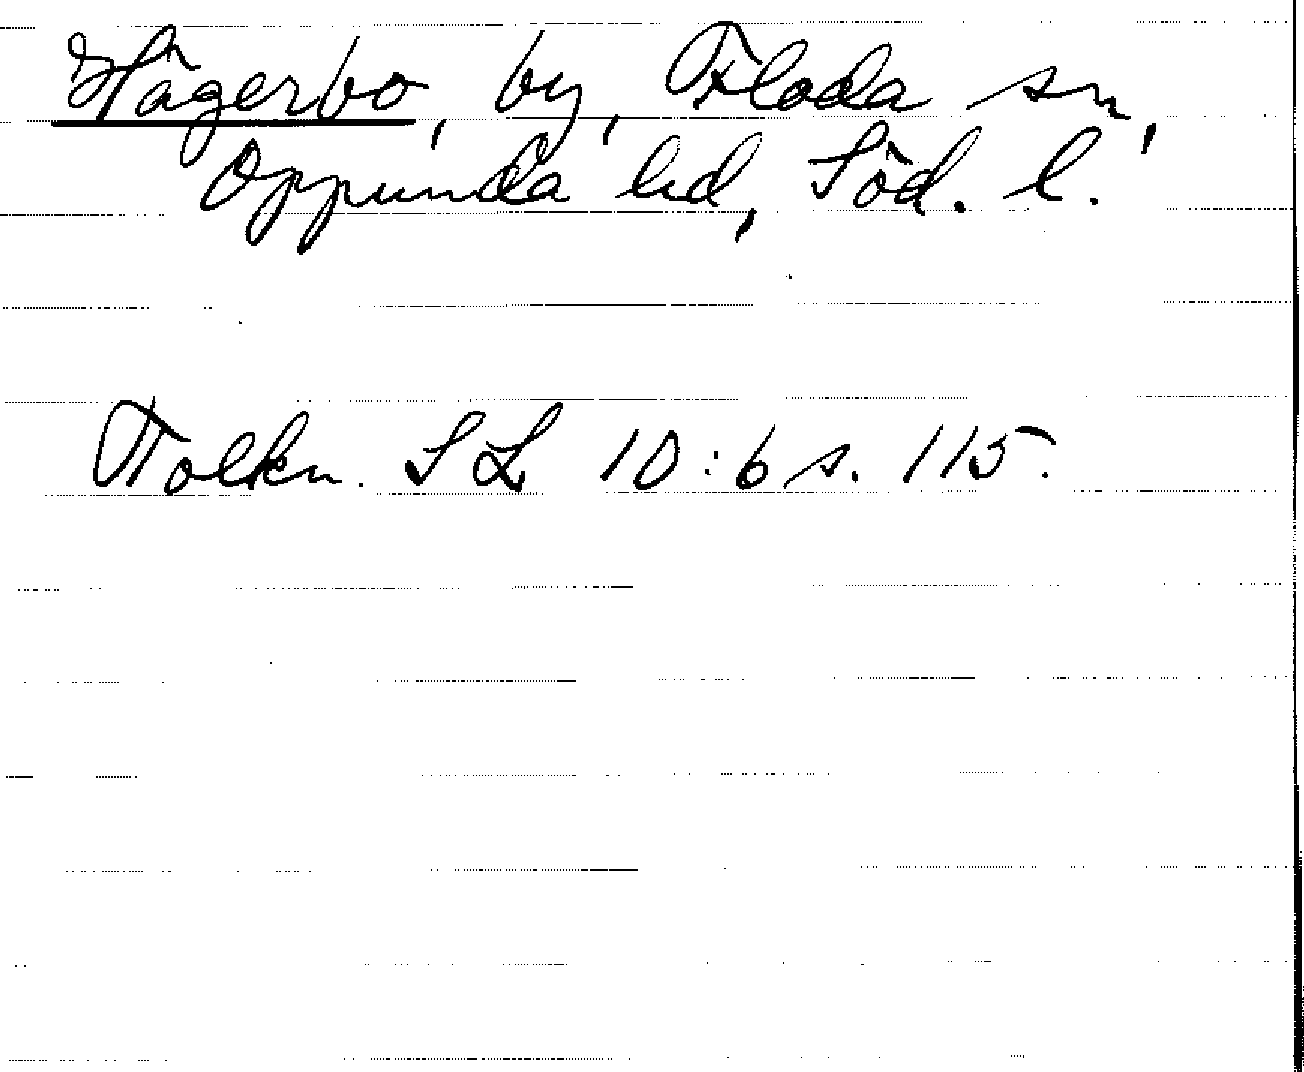 Hägerbo, by, Floda sn,
Oppunda hd, Söd. l.
Tolkn. SL 10:6 s. 115.